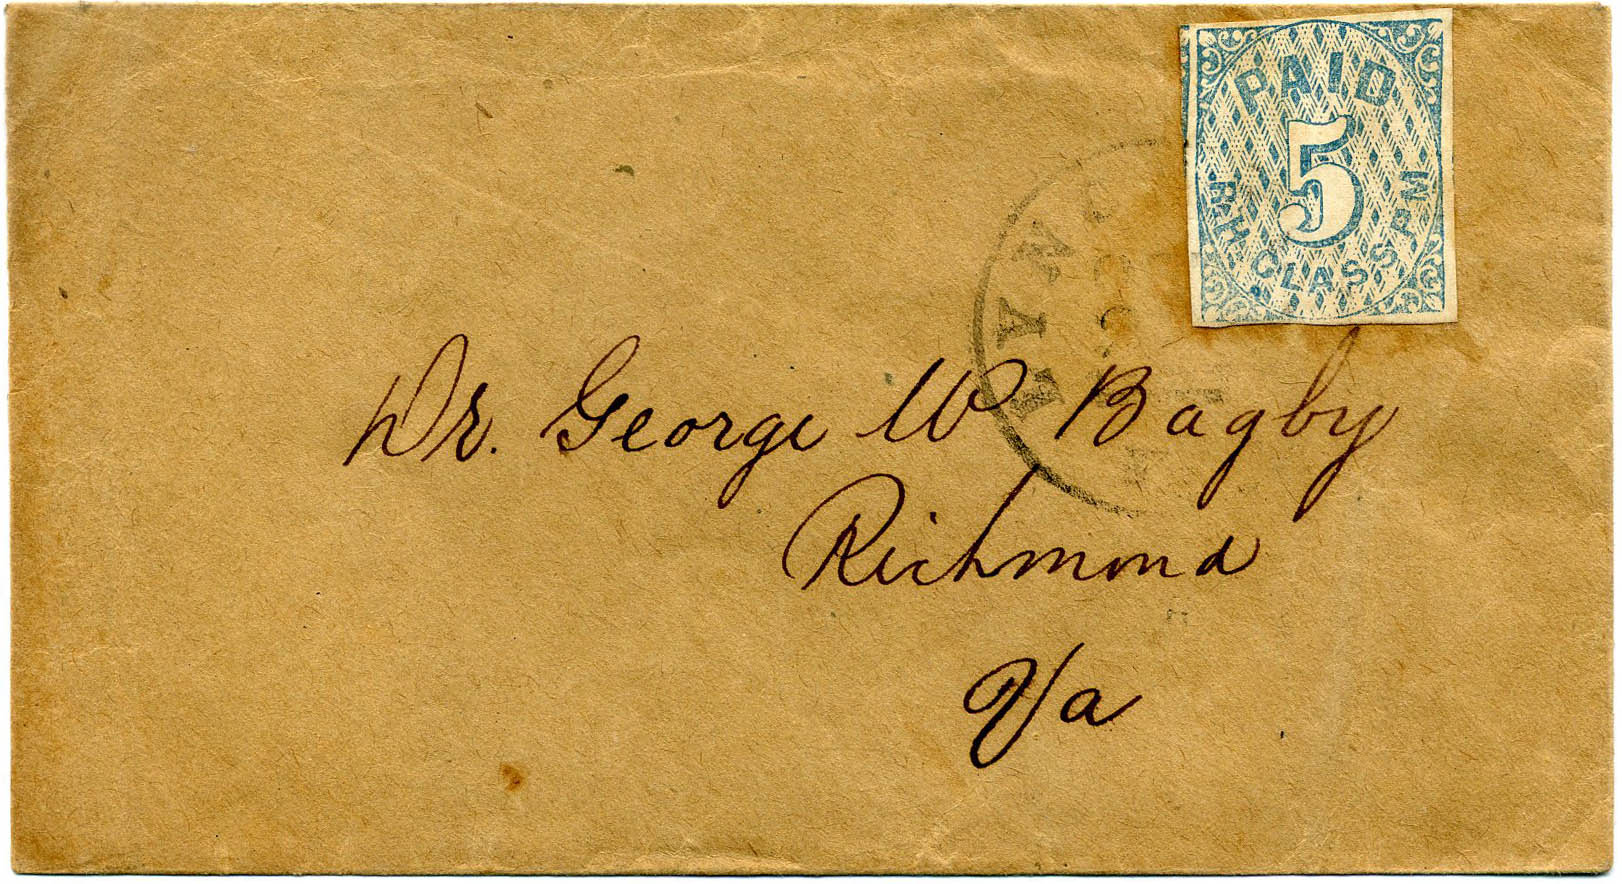 PAID
5
R.H. GLASS. PM
Dr. George W Bagby
Richmond
Va